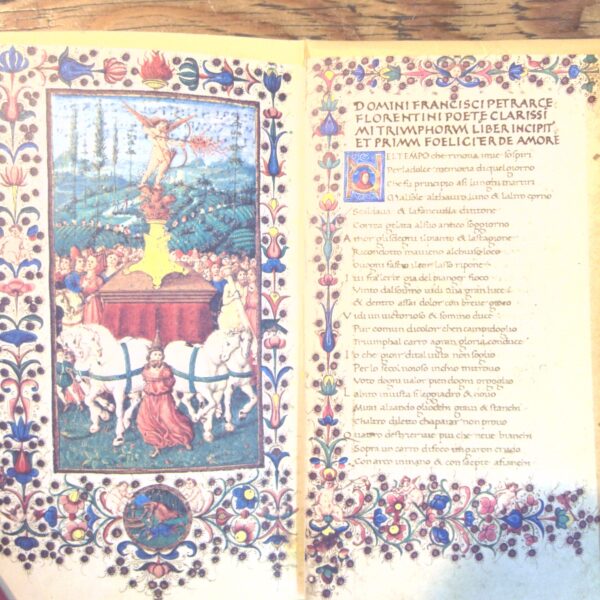 DOMINI FRANCISCI PETRARCE
FLORENTINI POETE CLARISSI
MI TRIVMPHORVM LIBER INCIPIT
ET PRIMM FOELICITER DE AMORE
NEL TEMPO che rinova imie sospiri
Per la dolce memoria di quel giorno
Che fu principio asi lunghi martiri
al thauro luno & laltro corno
Scaldava & la fanciulla di titone
Correa gelata al suo antico soggiorno
Amor gli sdegni il pianto & la stagione
Ricondotto maveno al chiuso loco
Ove ogni fascio il cor lasso ripone
Ivi fra lerbe gia del pianger fioco
Vinto dal sonno vidi una gran luce
& dentro assai dolor con breve gioco
Vidi un victorioso & sommo duce
Pur comun di color chen campidoglio
Triumphal carro a gran gloria conduce
Io che gioir di tal vista non soglio
Per lo secol noioso
Voto dogni valor pien dogni orgoglio
Labito
Mirai alzando gliocchi gravi & stanchi
Chaltro dilecto chaparar non provo
Quatro destrier vie piu che neve bianchi
Sopra un carro di foco un garzon crudo
Con arco in mano & con saepte a fianchi